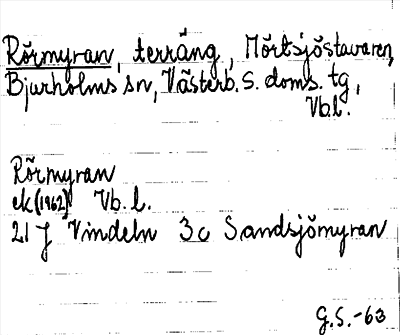 Rörmyran, terräng, Mörtsjöstavaren,
Bjurholms sn, Västerb. s. doms. tg,
Vbl.
Rörmyran
ek (1962) Vb. l.
21 J Vindeln 3c Sandsjömyran
G.S. -63